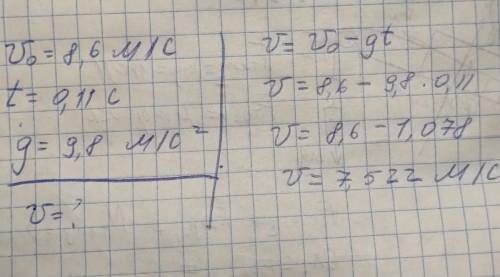 v₀ = 8,6 м/с
t = 0,11 с
g = 9,8 м/с²
v = ?
v = v₀ - gt
v = 8,6 - 9,8 · 0,11
v = 8,6 - 1,078
v = 7,522 м/с